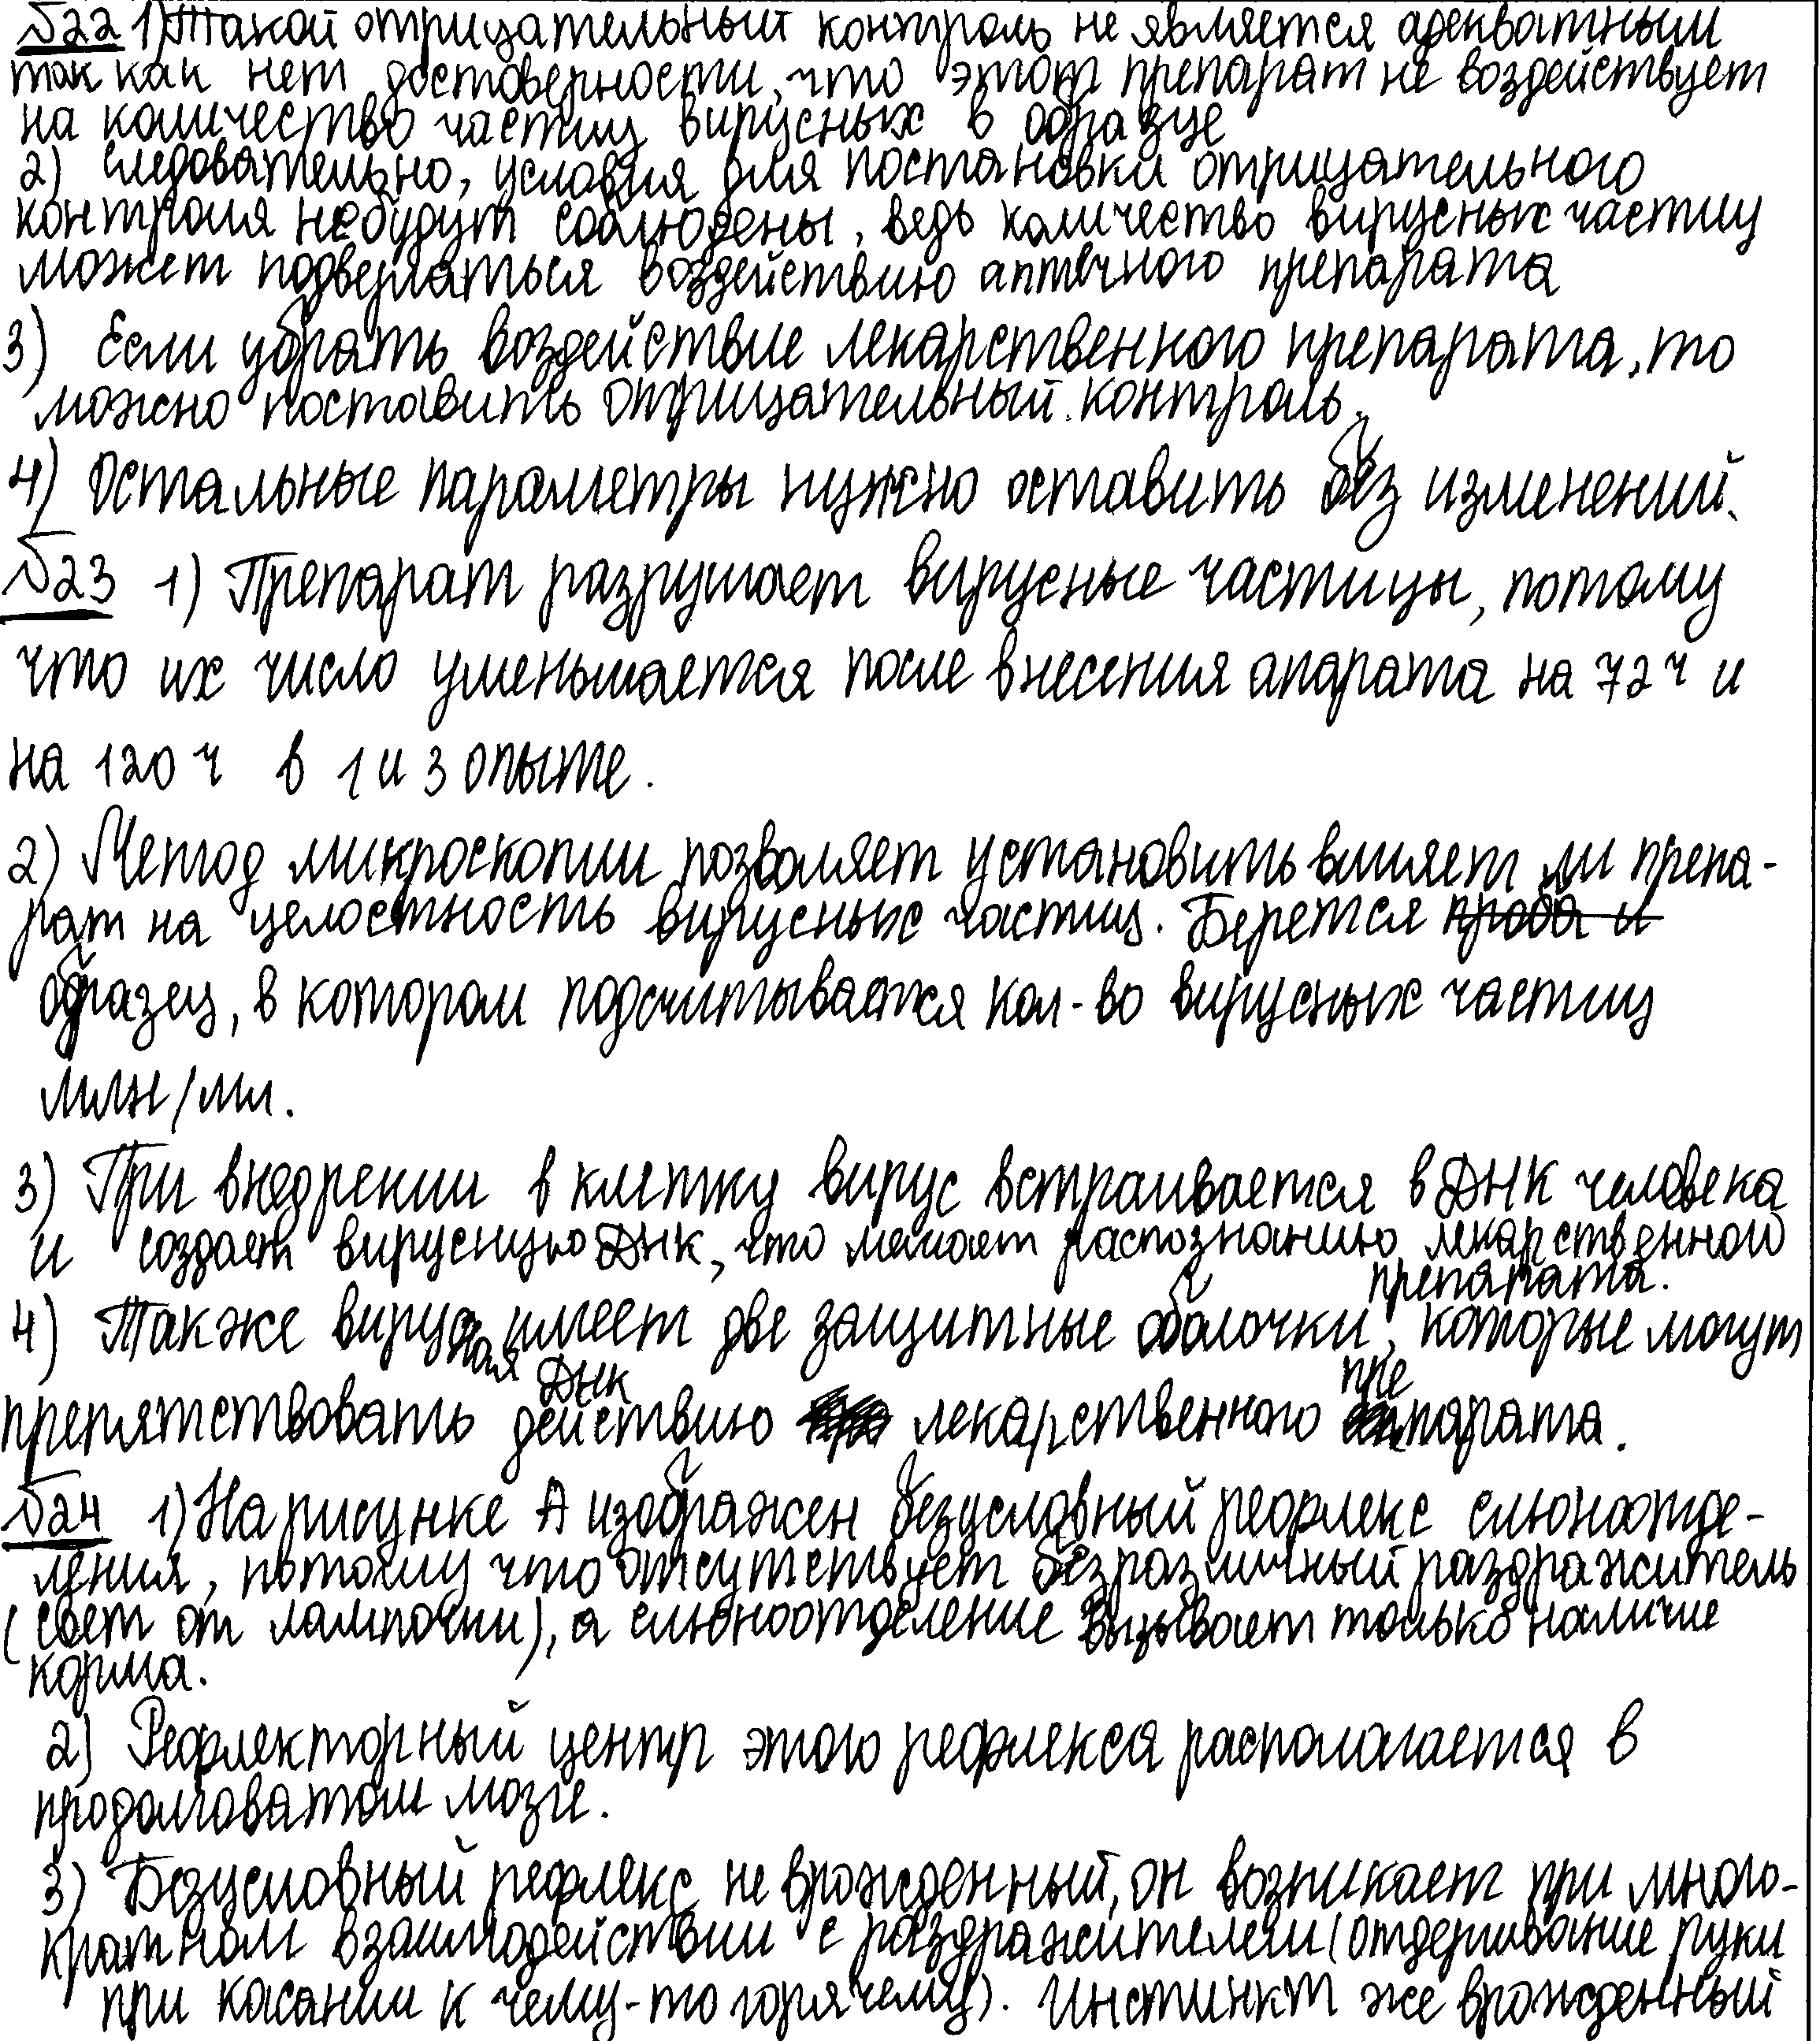 №22 1) Такой отрицательный контроль не является адекватным
так как нет достоверности, что этот препарат не воздействует
на количество частиц вирусных в образце
2) следовательно, условия для постановки отрицательного
контроля не будут соблюдены, ведь количество вирусных частиц
может подвергаться воздействию аптечного препарата
3) Если убрать воздействие лекарственного препарата, то
можно поставить отрицательный контроль.
4) Остальные параметры нужно оставить без изменений.
№23 1) Препарат разрушает вирусные частицы, потому
что их число уменьшается после внесения апарата на 72 ч и
на 120 ч в 1 и 3 опыте.
2) Метод микроскопии позволяет установить влияет ли препа-
рат на целостность вирусных частиц. Берется проба и
образец, в котором подсчитывается кол-во вирусных частиц
млн/мл.
3) При внедрении в клетку вирус встраивается в ДНК человека
и создает вирусную ДНК, что мешает распознанию лекарственного
препарата.
4) Также вирусная ДНК имеет две защитные оболочки, которые могут
препятствовать действию лекарственного препарата.
№24 1) На рисунке А изображен безусловный рефлекс слюноотде-
ления, потому что отсутствует безразличный раздражитель
(свет от лампочки), а слюноотделение вызывает только наличие
корма.
2) Рефлекторный центр этого рефлекса располагается в
продолговатом мозге.
3) Безусловный рефлекс не врожденный, он возникает при много-
кратном взаимодействии с раздражителем (отдергивание руки
при касании к чему-то горячему). Инстинкт же врожденный